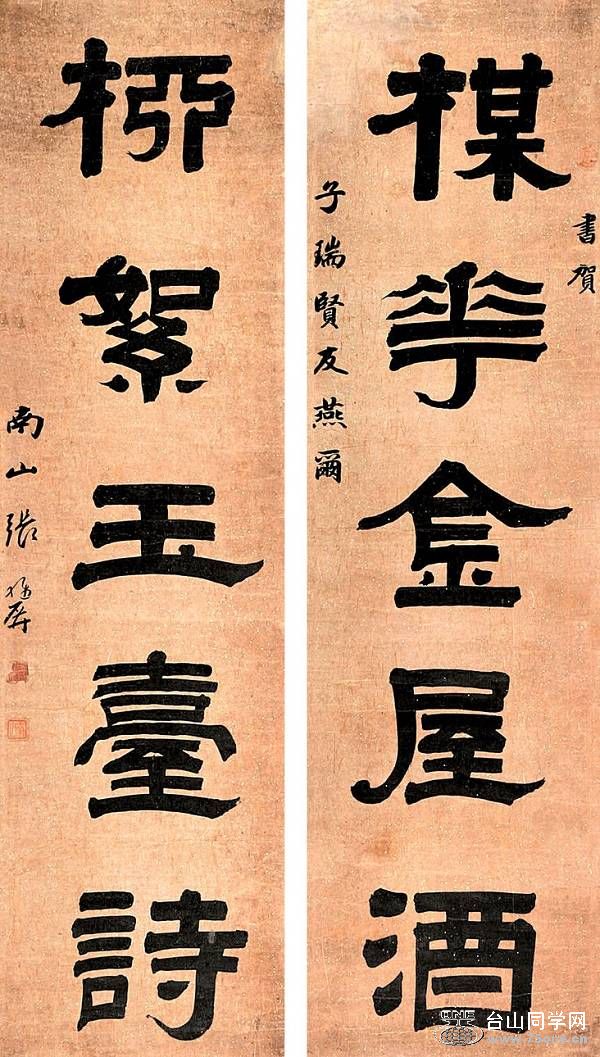 書賀
楳華金屋酒
子瑞賢友燕爾
桺絮玉臺詩
南山張維屏
台山同学网